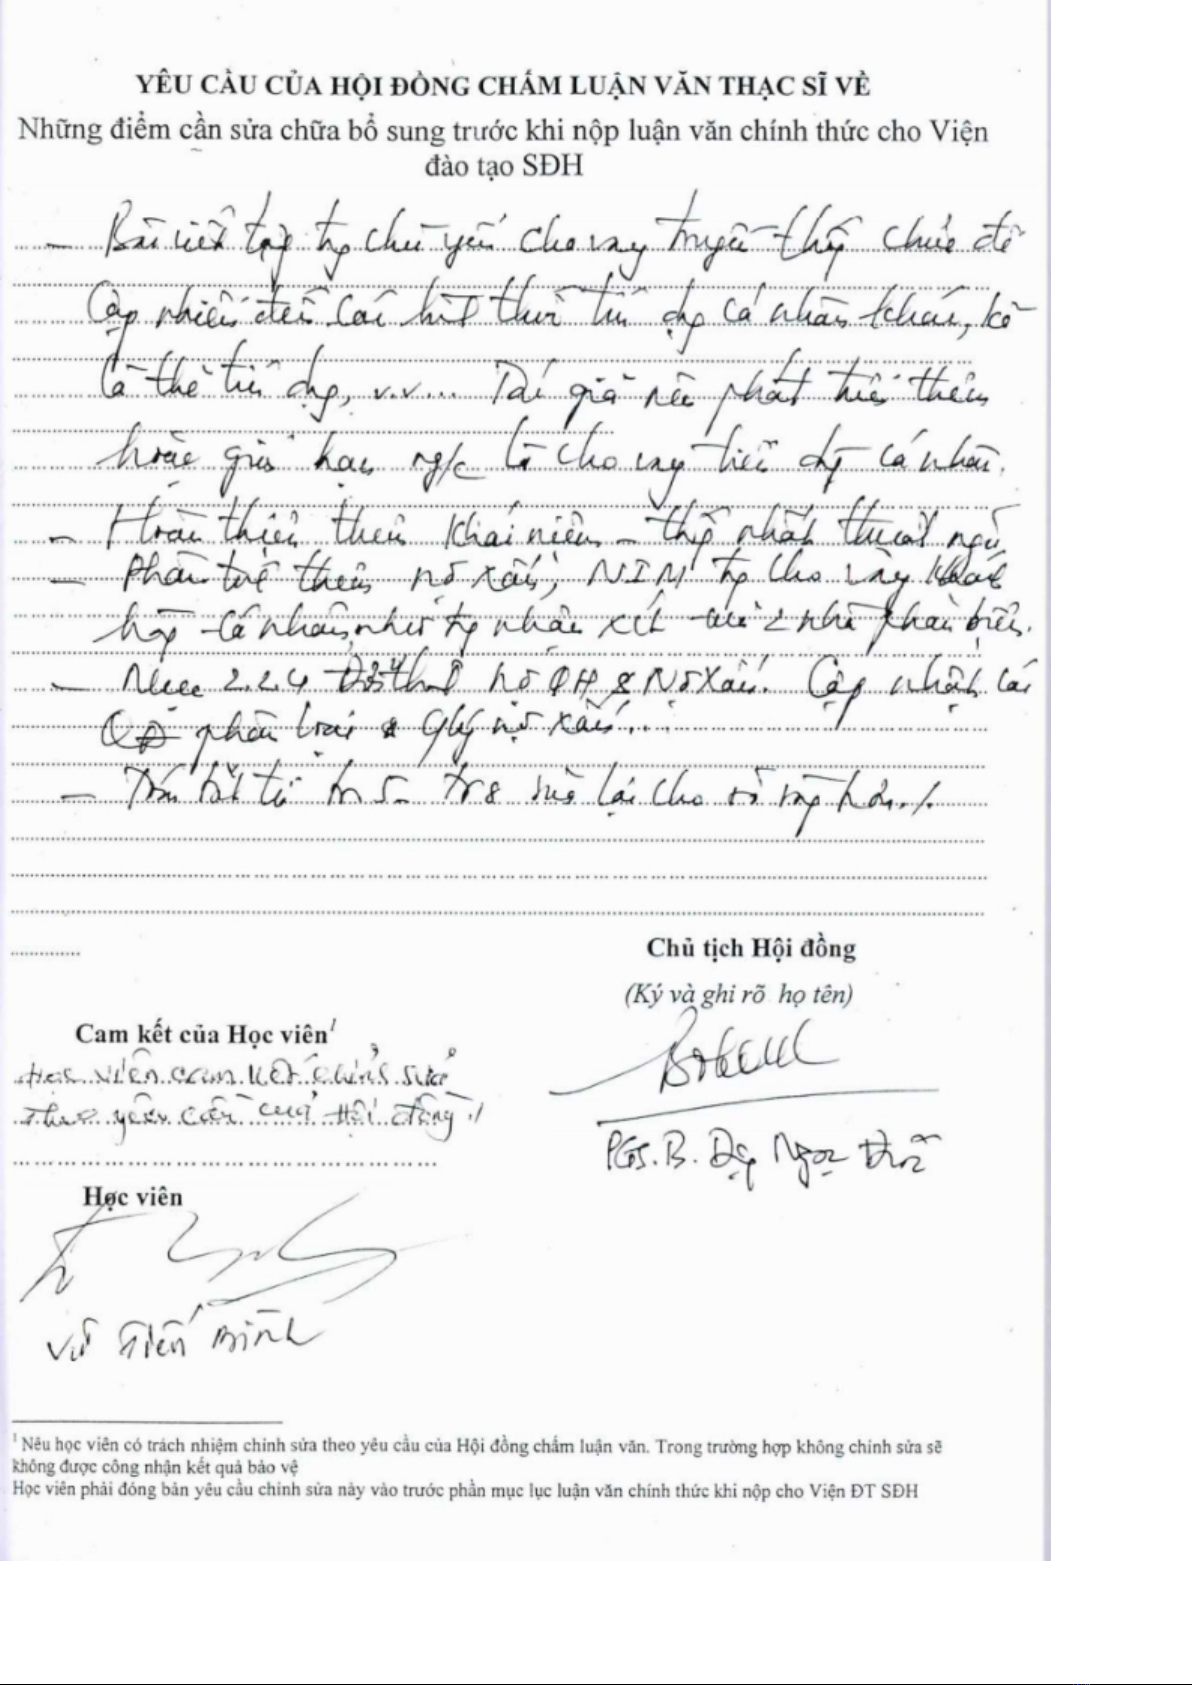 YÊU CẦU CỦA HỘI ĐỒNG CHẤM LUẬN VĂN THẠC SĨ VỀ
Những điểm cần sửa chữa bổ sung trước khi nộp luận văn chính thức cho Viện
đào tạo SĐH
- Bài viết tập tg chủ yếu cho vay truyền thống chưa đề
cập nhiều đến các hình thức tín dụng cá nhân khác,
là thẻ tín dụng, v.v... Tác giả nên phát triển thêm
hoặc giới hạn ng/c là cho vay tiêu dùng cá nhân.
- Hoàn thiện thêm khái niệm - thống nhất thuật ngữ
- Phân tích thêm nợ xấu, NIM tg cho vay khách
hàng cá nhân như nhận xét của 2 nhà phản biện.
- Mục 2.2.4 nợ QH & Nợ xấu. Cập nhật các
QĐ phân loại & Qlý nợ xấu...
- Tóm tắt từ tr 5 - tr 8 sửa lại cho rõ ràng hơn./.
Chủ tịch Hội đồng
(Ký và ghi rõ họ tên)
PGS.TS. Đặng Ngọc Đức
Cam kết của Học viên1
Học viên cam kết chỉnh sửa
theo yêu cầu của Hội đồng ./
Học viên
Vũ Tiến Bình
1 Nêu học viên có trách nhiệm chỉnh sửa theo yêu cầu của Hội đồng chấm luận văn. Trong trường hợp không chỉnh sửa sẽ
không được công nhận kết quả bảo vệ
Học viên phải đóng bản yêu cầu chỉnh sửa này vào trước phần mục lục luận văn chính thức khi nộp cho Viện ĐT SĐH